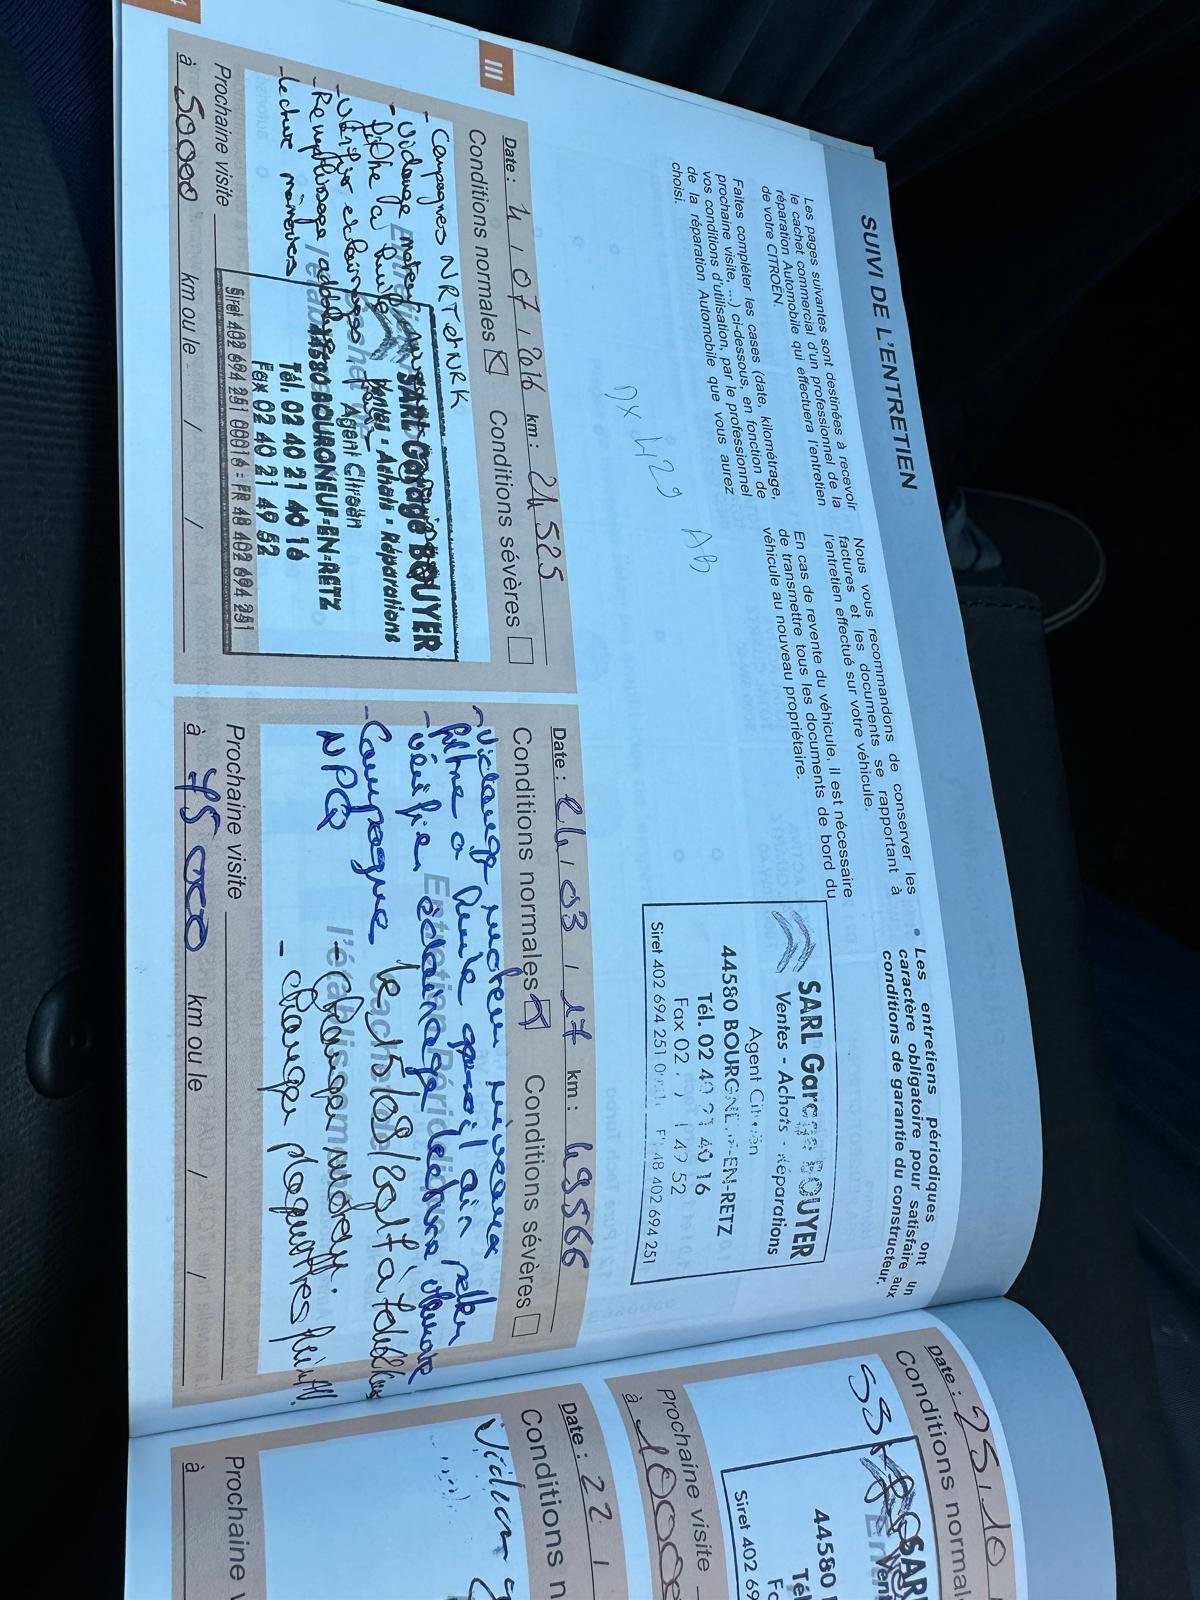 SUIVI DE L'ENTRETIEN
Les pages suivantes sont destinées à recevoir
le cachet commercial d'un professionnel de la
réparation Automobile qui effectuera l'entretien
de votre CITROËN.
Faites compléter les cases (date, kilométrage,
prochaine visite, ...) ci-dessous, en fonction de
vos conditions d'utilisation, par le professionnel
de la réparation Automobile que vous aurez
choisi.
Nous vous recommandons de conserver les
factures et les documents se rapportant à
l'entretien effectué sur votre véhicule.
En cas de revente du véhicule, il est nécessaire
de transmettre tous les documents de bord du
véhicule au nouveau propriétaire.
• Les entretiens périodiques ont un
caractère obligatoire pour satisfaire aux
conditions de garantie du constructeur.
SARL Garage BOUYER
Ventes - Achats - Réparations
Agent Citroën
44580 BOURGNEUF-EN-RETZ
Tél. 02 40 21 40 16
Fax 02 40 21 49 52
Siret 402 694 251 00016 - FR 48 402 694 251
III
Date : 4 / 07 / 2016 km : 24 525
Conditions normales Conditions sévères
- Campagnes NRT et NRK
- Vidange moteur
filtre à huile
- Vérifier éclairage
- Remplissage
- Lecture mémoires
SARL Garage BOUYER
Ventes - Achats - Réparations
Agent Citroën
44580 BOURGNEUF-EN-RETZ
Tél. 02 40 21 40 16
Fax 02 40 21 49 52
Siret 402 694 251 00016 - FR 48 402 694 251
Prochaine visite
à 50000 km ou le / /
Date : 24 / 03 / 17 km : 49566
Conditions normales Conditions sévères
- Vidange moteur niveaux
filtre à huile
- Vérifier éclairage lecture
- Campagne
NPQ
- Changer plaquettes
Prochaine visite
à 75 000 km ou le / /
Date : 25 / 10
Conditions normal
SAR
Vent
44580
Tél
Siret 402 69
Prochaine visite
à 10000
Date : 22 /
Conditions n
Prochaine v
à